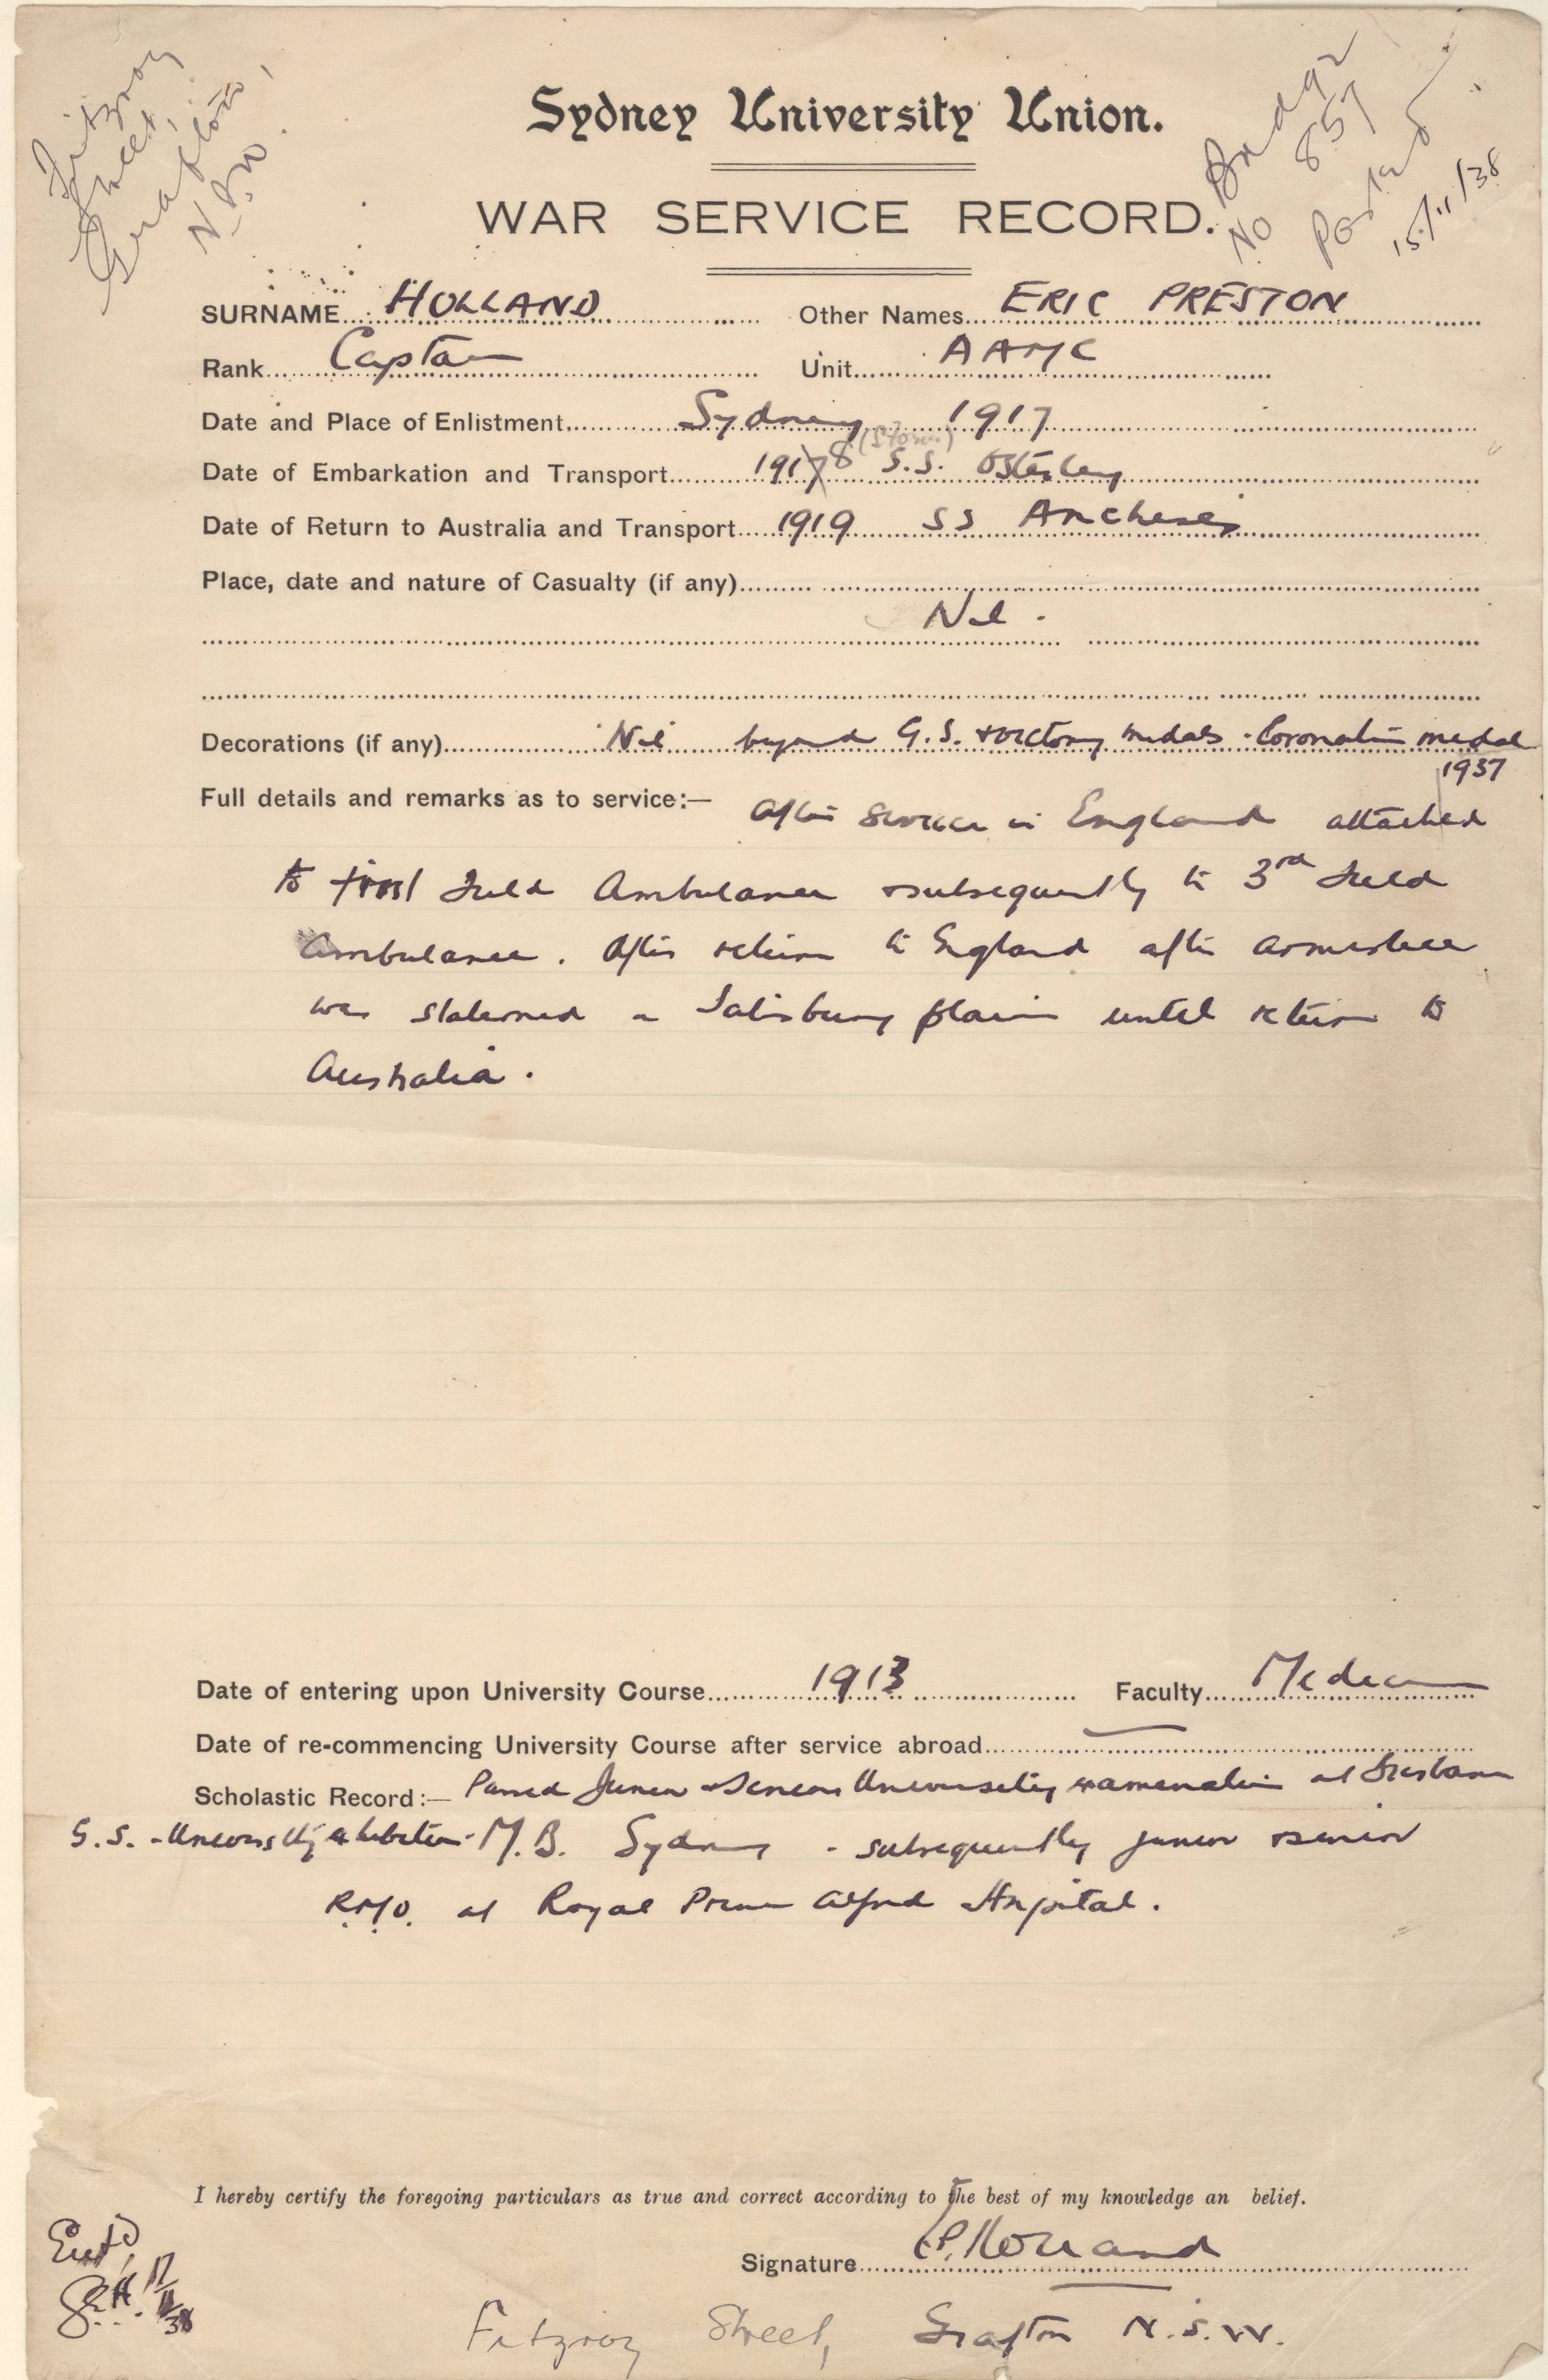 Fitzroy
Street,
Grafton,
N.S.W.
Badge
No 857
Posted
15/11/38
Sydney University Union.
WAR SERVICE RECORD.
SURNAME HOLLAND Other Names ERIC PRESTON
Rank Captain Unit AAMC
Date and Place of Enlistment Sydney 1917
Date of Embarkation and Transport 1917 8 S.S. Osterley
Date of Return to Australia and Transport 1919 SS Anchises
Place, date and nature of Casualty (if any)
Nil.
Decorations (if any) Nil beyond G.S. & Victory medals - Coronation medal
1937
Full details and remarks as to service:— After service in England attached
to first Field Ambulance & subsequently to 3rd Field
Ambulance. After return to England after armistice
was stationed on Salisbury plain until return to
Australia.
Date of entering upon University Course 1913 Faculty Medicine
Date of re-commencing University Course after service abroad —
Scholastic Record:— Passed Junior & Senior University examination at Brisbane
G.S. - University exhibition - M.B. Sydney - subsequently junior & senior
R.M.O. at Royal Prince Alfred Hospital.
I hereby certify the foregoing particulars as true and correct according to the best of my knowledge an belief.
Signature E.P. Holland
Fitzroy Street, Grafton N.S.W.
Entd
17/11/38